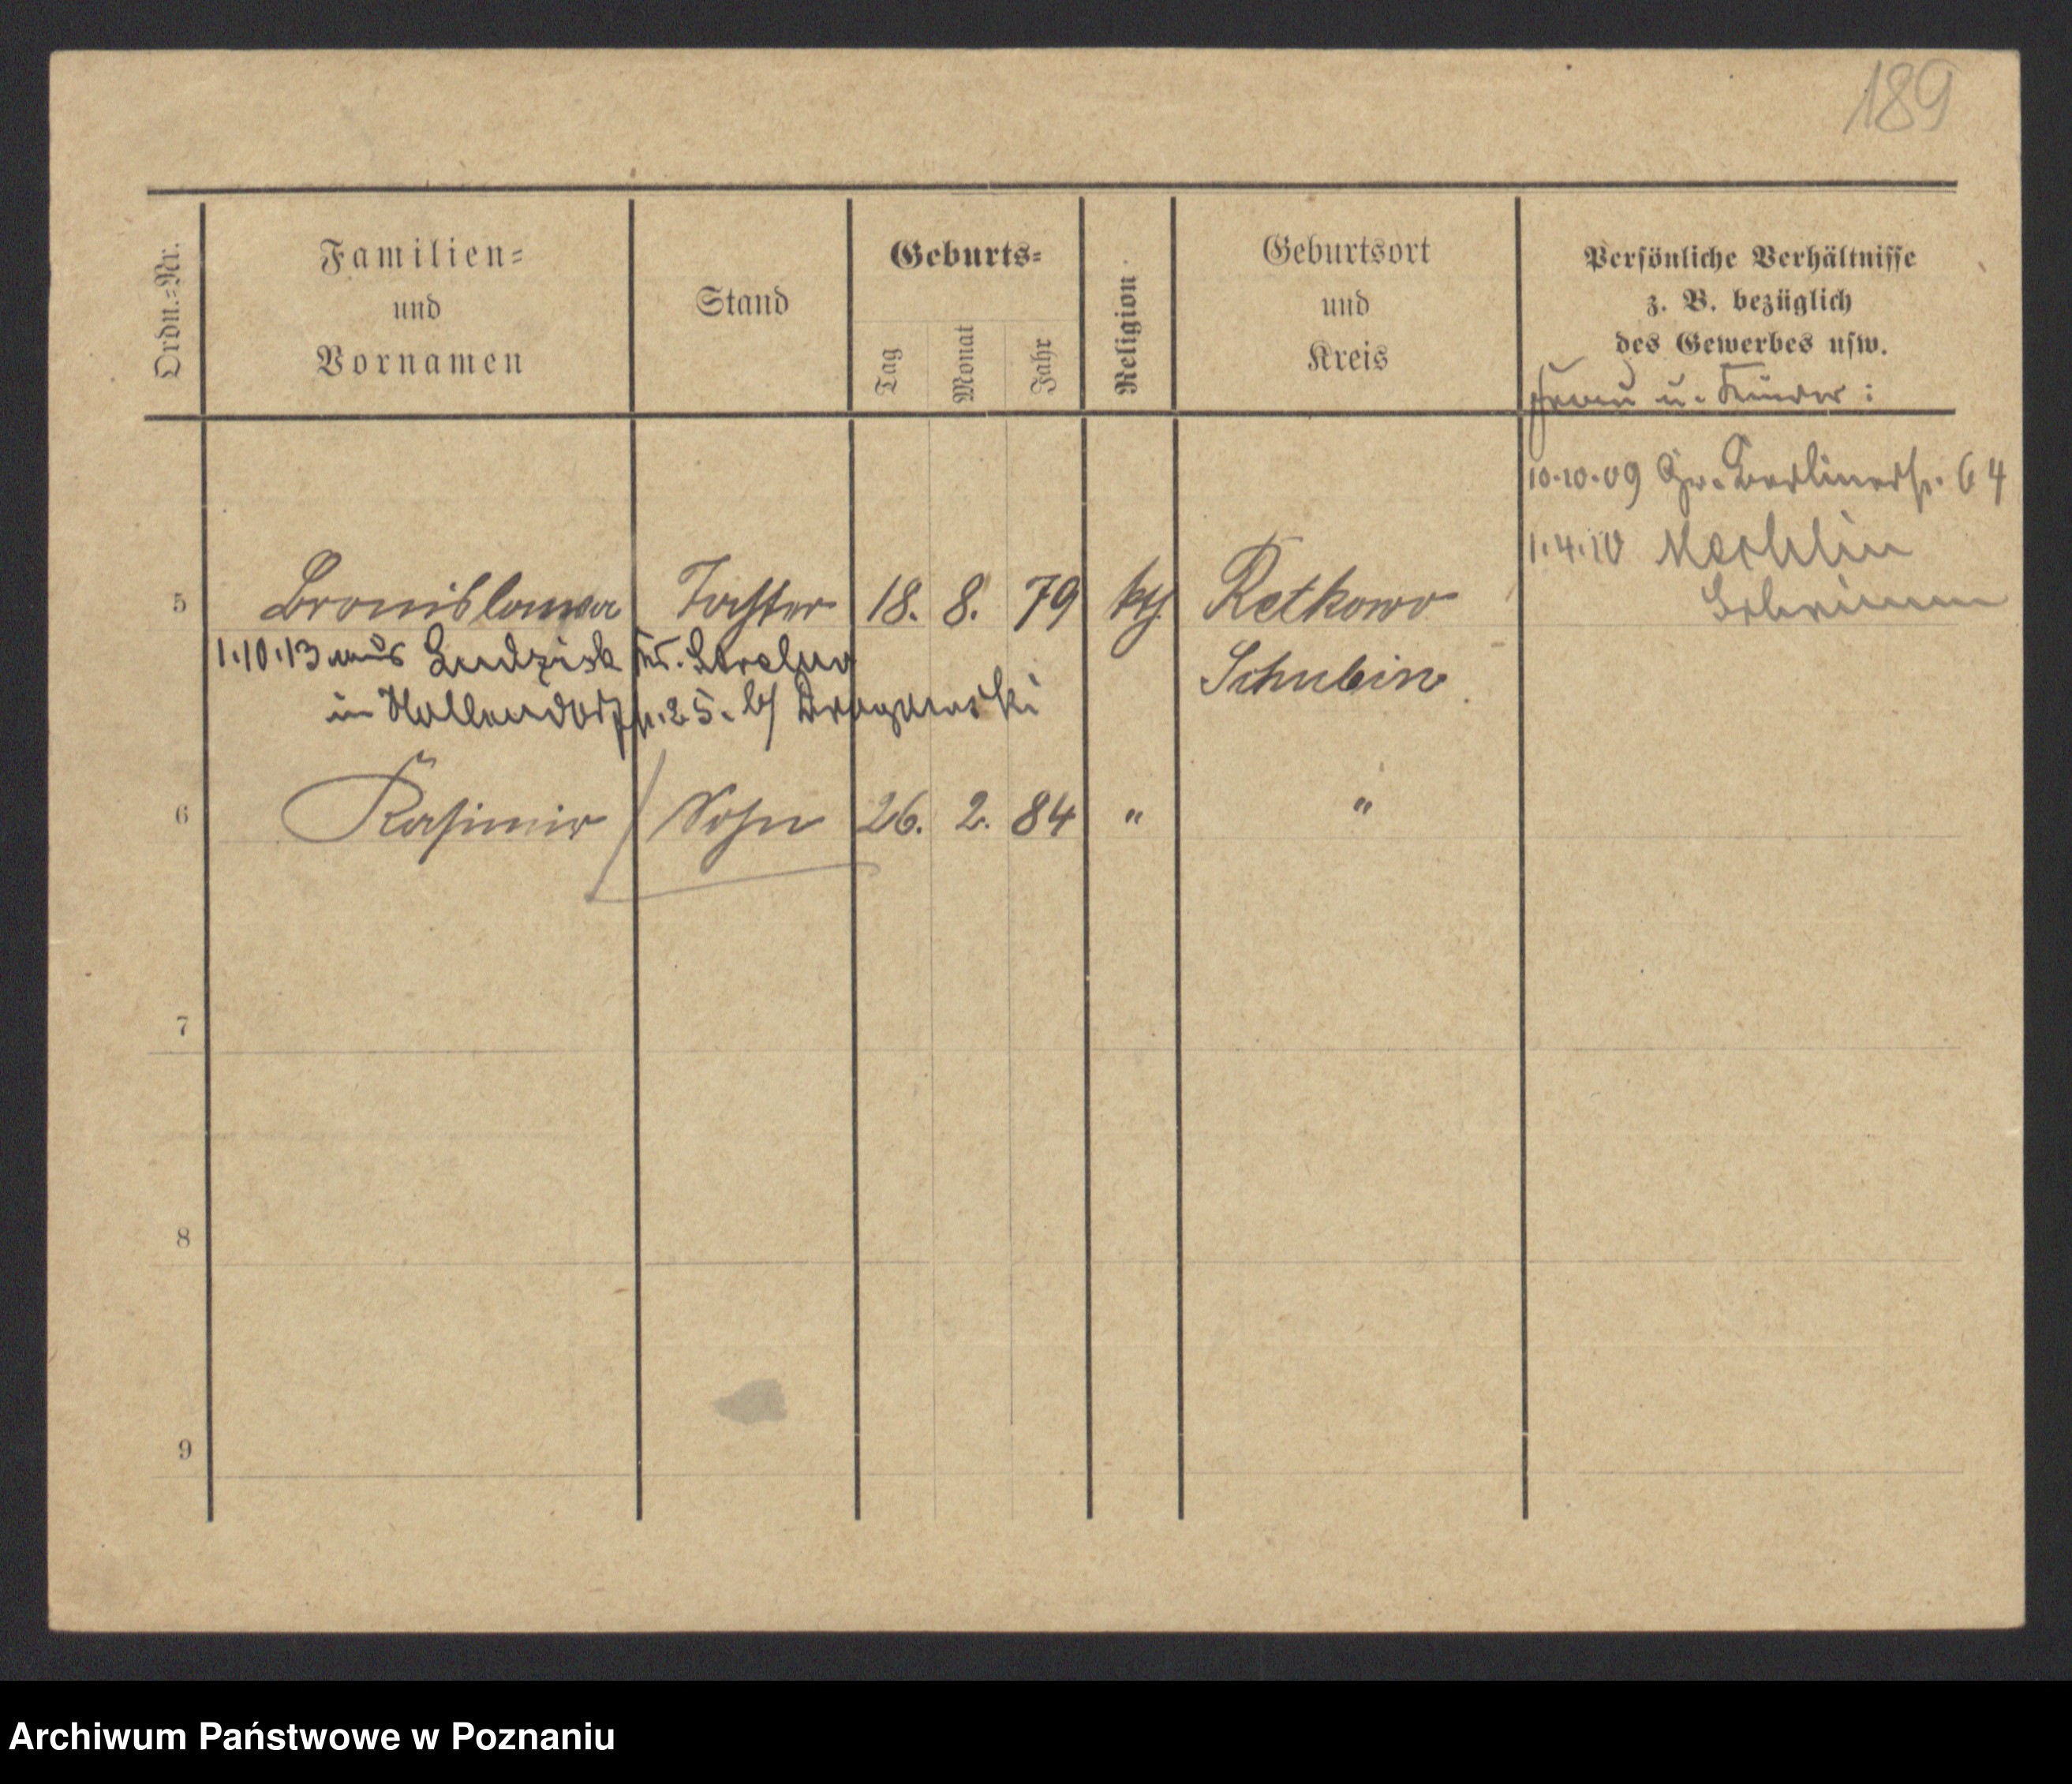 189
Ordn.=Nr.
Familien=
und
Vornamen
Stand
Geburts=
Tag
Monat
Jahr
Religion
Geburtsort
und
Kreis
Persönliche Verhältnisse
z. B. bezüglich
des Gewerbes usw.
Frau u. Kinder:
10.10.09 Gr. Berlinerstr. 64
1.4.10 Mechlin
Schrimm
5 Bronislawa Tochter 18. 8. 79 kth. Retkowo
Schubin
1.10.13 aus Ludzisk Kr. Strelno
in Hollendorffstr. 25. b/
6 Kasimir Sohn 26. 2. 84 " "
7
8
9
Archiwum Państwowe w Poznaniu